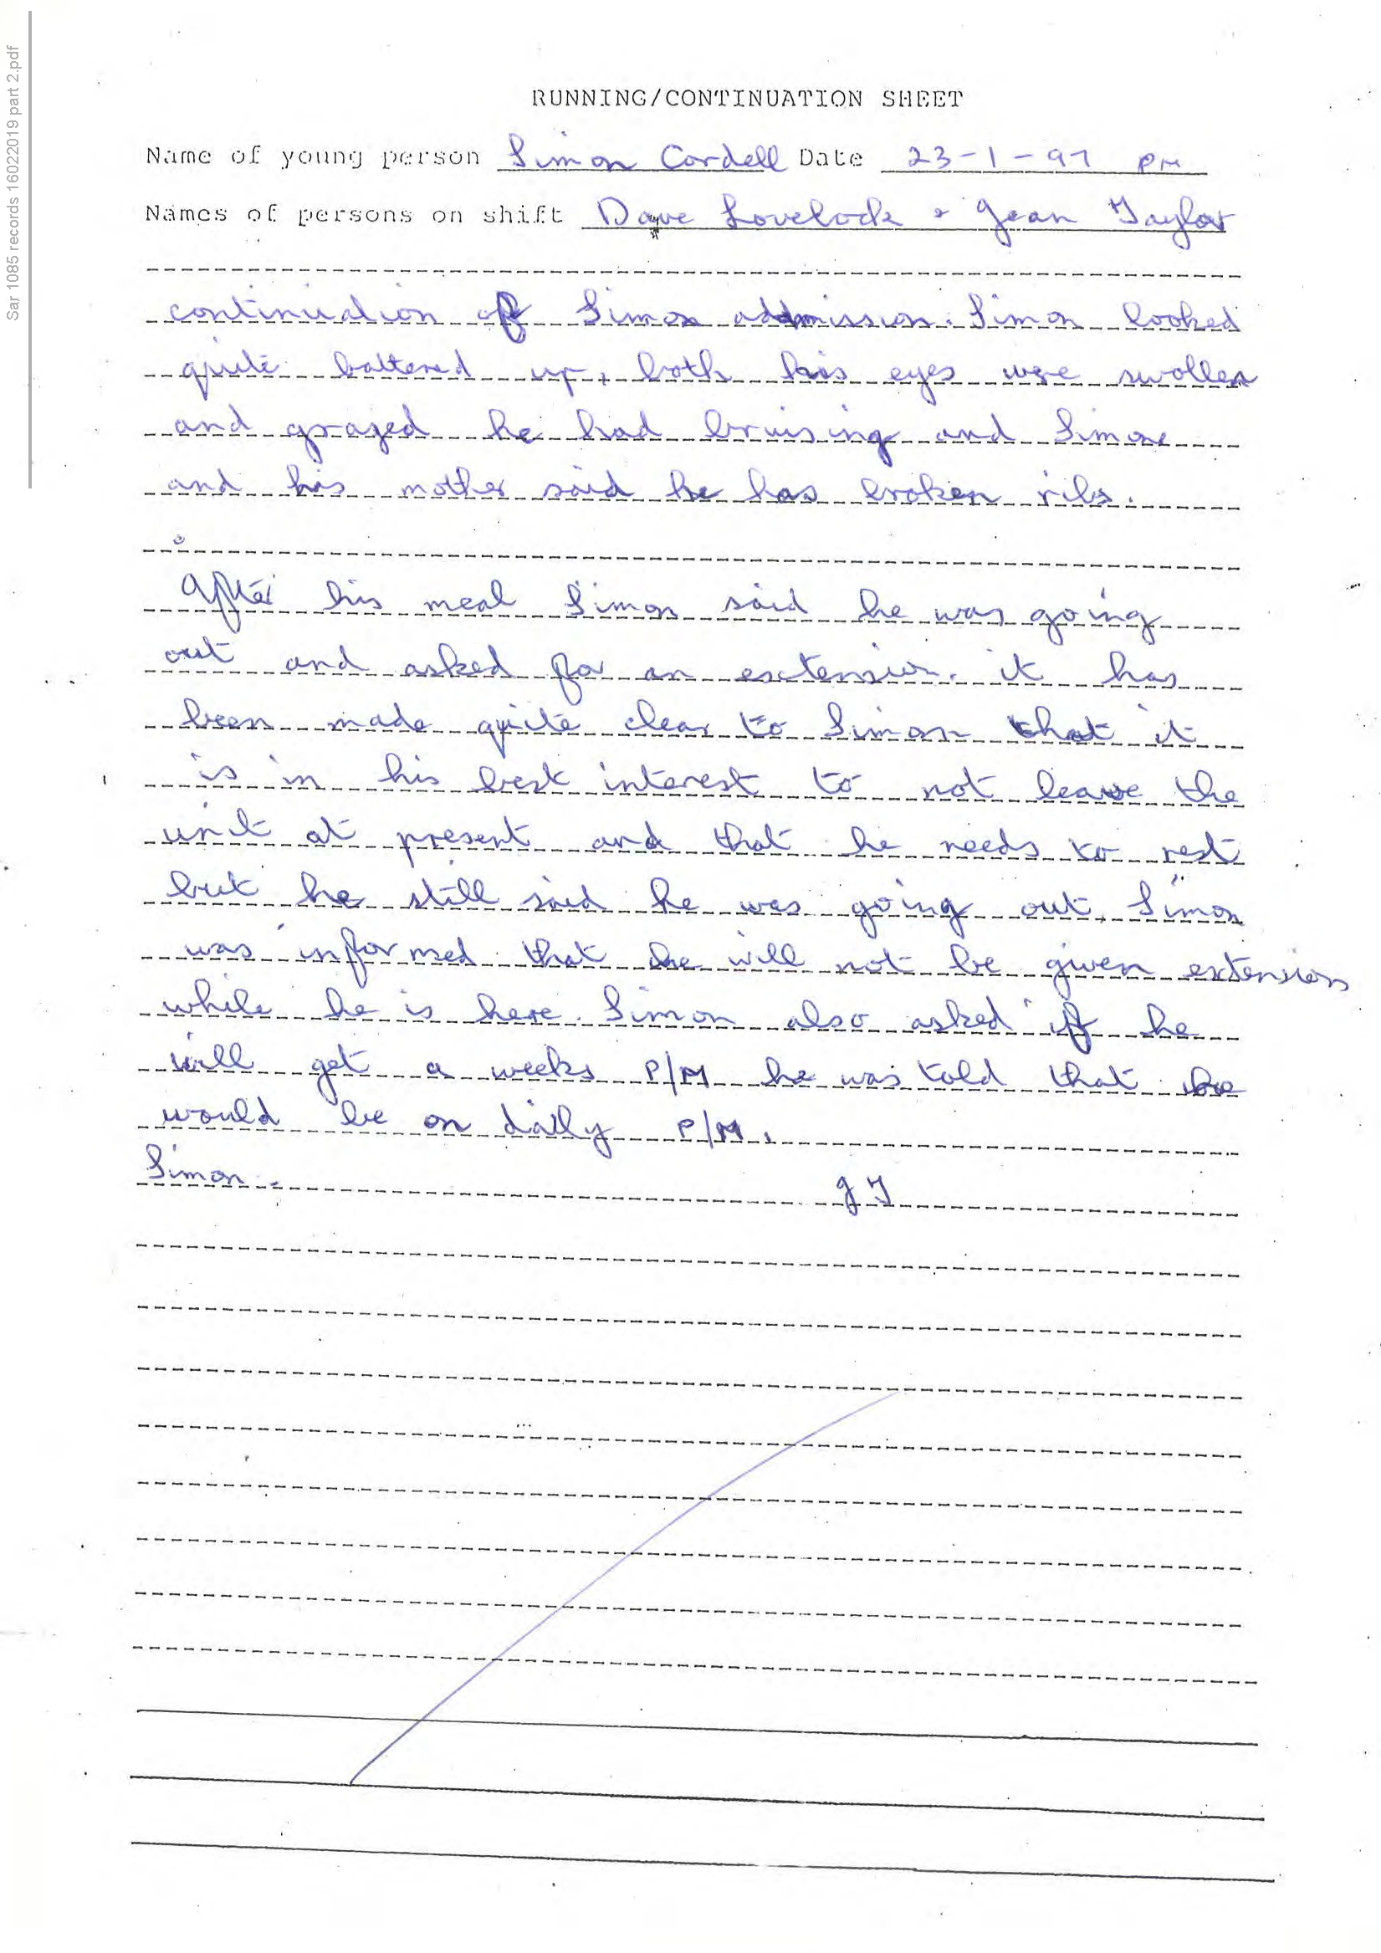 Sar 1085 records 16022019 part 2.pdf
RUNNING/CONTINUATION SHEET
Name of young person Simon Cordell Date 23-1-97 PM
Names of persons on shift Dave Lovelock & Jean Taylor
continuation of Simon admission. Simon looked
quite battered up, both his eyes were swollen
and grazed he had bruising and Simon
and his mother said he has broken ribs.
After his meal Simon said he was going
out and asked for an extension. it has
been made quite clear to Simon that it
is in his best interest to not leave the
unit at present and that he needs to rest
but he still said he was going out. Simon
was informed that he will not be given extension
while he is here. Simon also asked if he
will get a weeks P/M he was told that he
would be on daily P/M.
Simon. JT